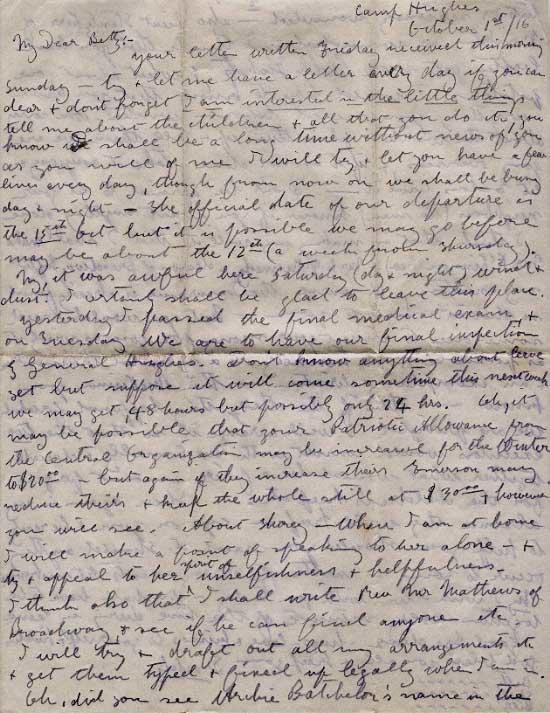 Camp Hughes
October 1st/16
My Dear Betty:-
your letter written Friday received this morning
Sunday - try & let me have a letter every day if you can
dear & dont forget I am interested in the little things
tell me about the children & all that you do etc, you
know we shall be a long time without news of you
as you will of me I will try & let you have a few
lines every day, though from now on we shall be busy
day & night - The official date of our departure is
the 15th Oct but it is possible we may go before
may be about the 12th (a week from Thursday),
My, it was awful here Saturday (day & night) wind &
dust. I certainly shall be glad to leave this place.
Yesterday I passed the final medical exam, &
on Tuesday we are to have our final inspection
by General Hughes. Dont know anything about leave
yet but suppose it will come sometime this next week
we may get 48 hours but possibly only 24 hrs. Oh, it
may be possible that your Patriotic Allowance from
the Central Organization may be increased for the Winter
to $20.00 - but again if they increase theirs Emerson may
reduce theirs & keep the whole still at $30.00, however
you will see. About - When I am at home
I will make a point of speaking to her alone &
try & appeal to her spirit of unselfishness & helpfulness.
I think also that I shall write Rev Mr Mathews of
Broadway & see if he can find anyone etc.
I will try & draft out all my arrangements etc
& get them typed & fixed up legally when I am in.
Oh, did you see Archie Batchelor's name in the